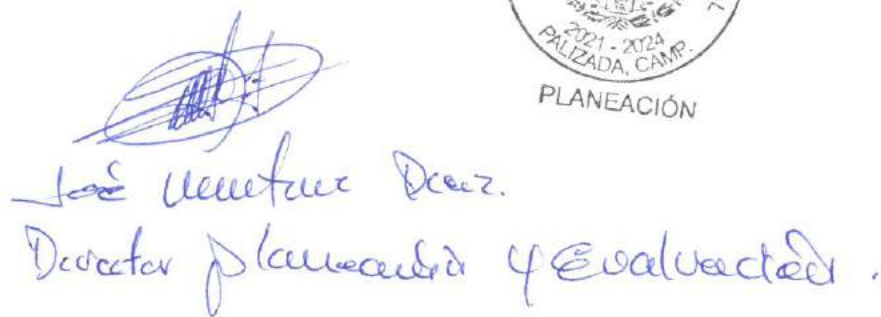 2021 - 2024
PALIZADA, CAMP.
PLANEACIÓN
José Díaz.
Director Planeación y Evaluación.